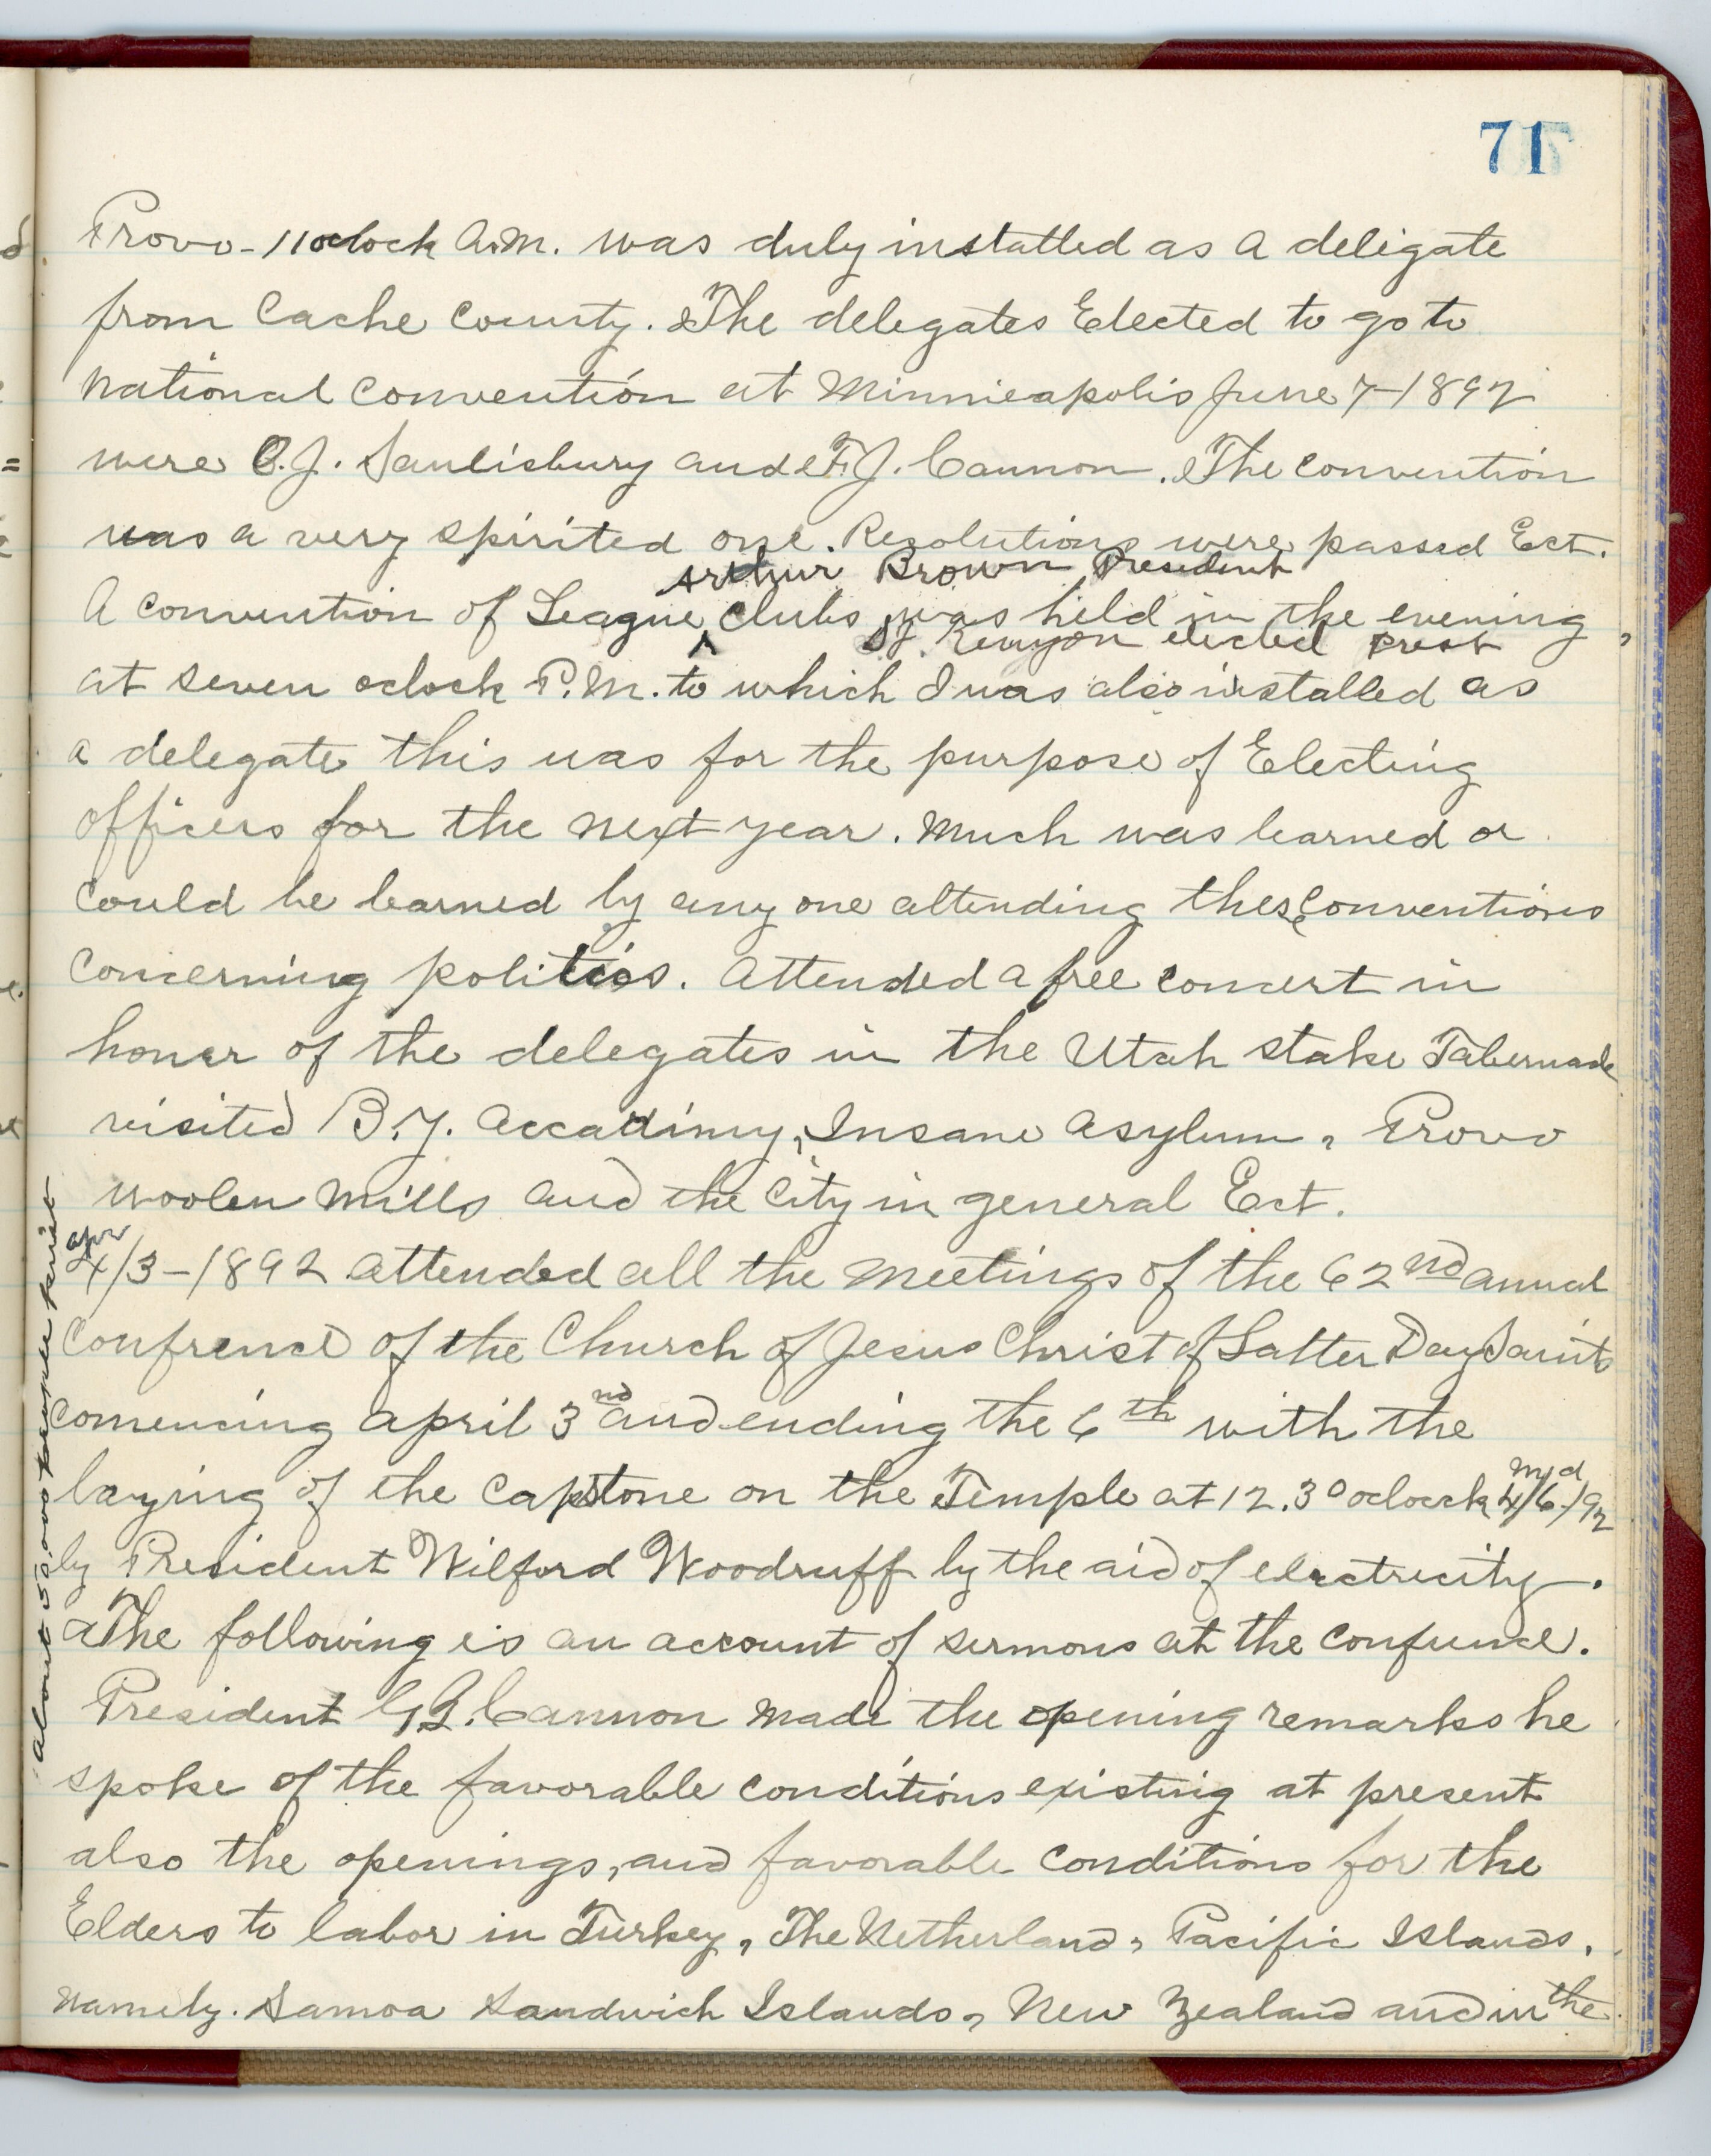 71
Provo - 11 oclock A.M. was duly installed as a deligate
from Cache County. The delegates Elected to go to
National Convention at Minnieapolis June 7-1892
were O.J. Saulisbury and F.J. Cannon. The convention
was a very spirited one. Resolutions were passed Ect.
Arthur Brown President
A convention of League Clubs was held in the evening,
Kenyon elected prest
at seven oclock P.M. to which I was also installed as
a delegate this was for the purpose of Electing
officers for the next year. Much was learned or
could be learned by any one attending these Conventions
Concerning politics. Attended a free concert in
honor of the delegates in the Utah Stake Tabernacle
visited B.Y. Accadimy, Insane Asylum, Provo
Woolen Mills and the City in general Ect.
apr
4/3-1892 Attended all the Meetings of the 62nd annual
Confrence of the Church of Jesus Christ of Latter Day Saints
Comencing April 3nd and ending the 6th with the
m d
laying of the Capstone on the Temple at 12.30 oclock 4/6/92
by President Wilford Woodruff by the aid of electricity.
The following is an account of sermons at the confrence.
President G.Q. Cannon made the opening remarks he
spoke of the favorable conditions existing at present
also the openings, and favorable conditions for the
Elders to labor in Turkey, The Netherland, Pacific Islands,
Namely. Samoa Sandwich Islands, New Zealand and in the
about 50.000 people